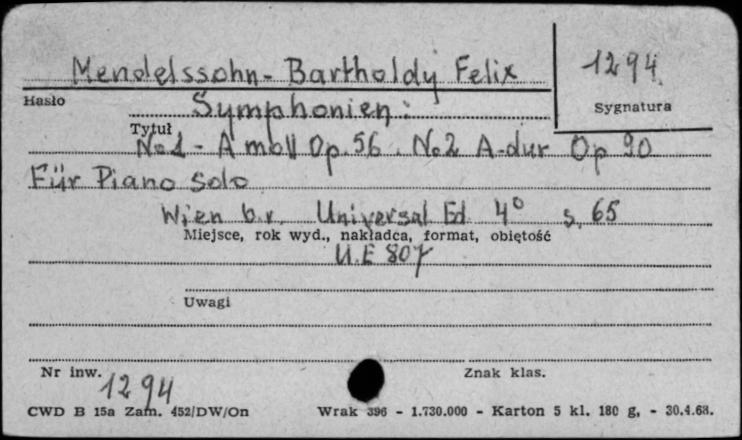 Mendelssohn-Bartholdy Felix
1294
Hasło
Sygnatura
Symphonien:
Tytuł
No 1 - A moll Op. 56. No 2 A-dur Op 90
Für Piano solo
Wien b.r. Universal Ed. 4° s. 65
Miejsce, rok wyd., nakładca, format, objętość
U.E 807
Uwagi
Nr inw.
1294
Znak klas.
CWD B 15a Zam. 452/DW/On Wrak 396 - 1.730.000 - Karton 5 kl. 180 g, - 30.4.68.